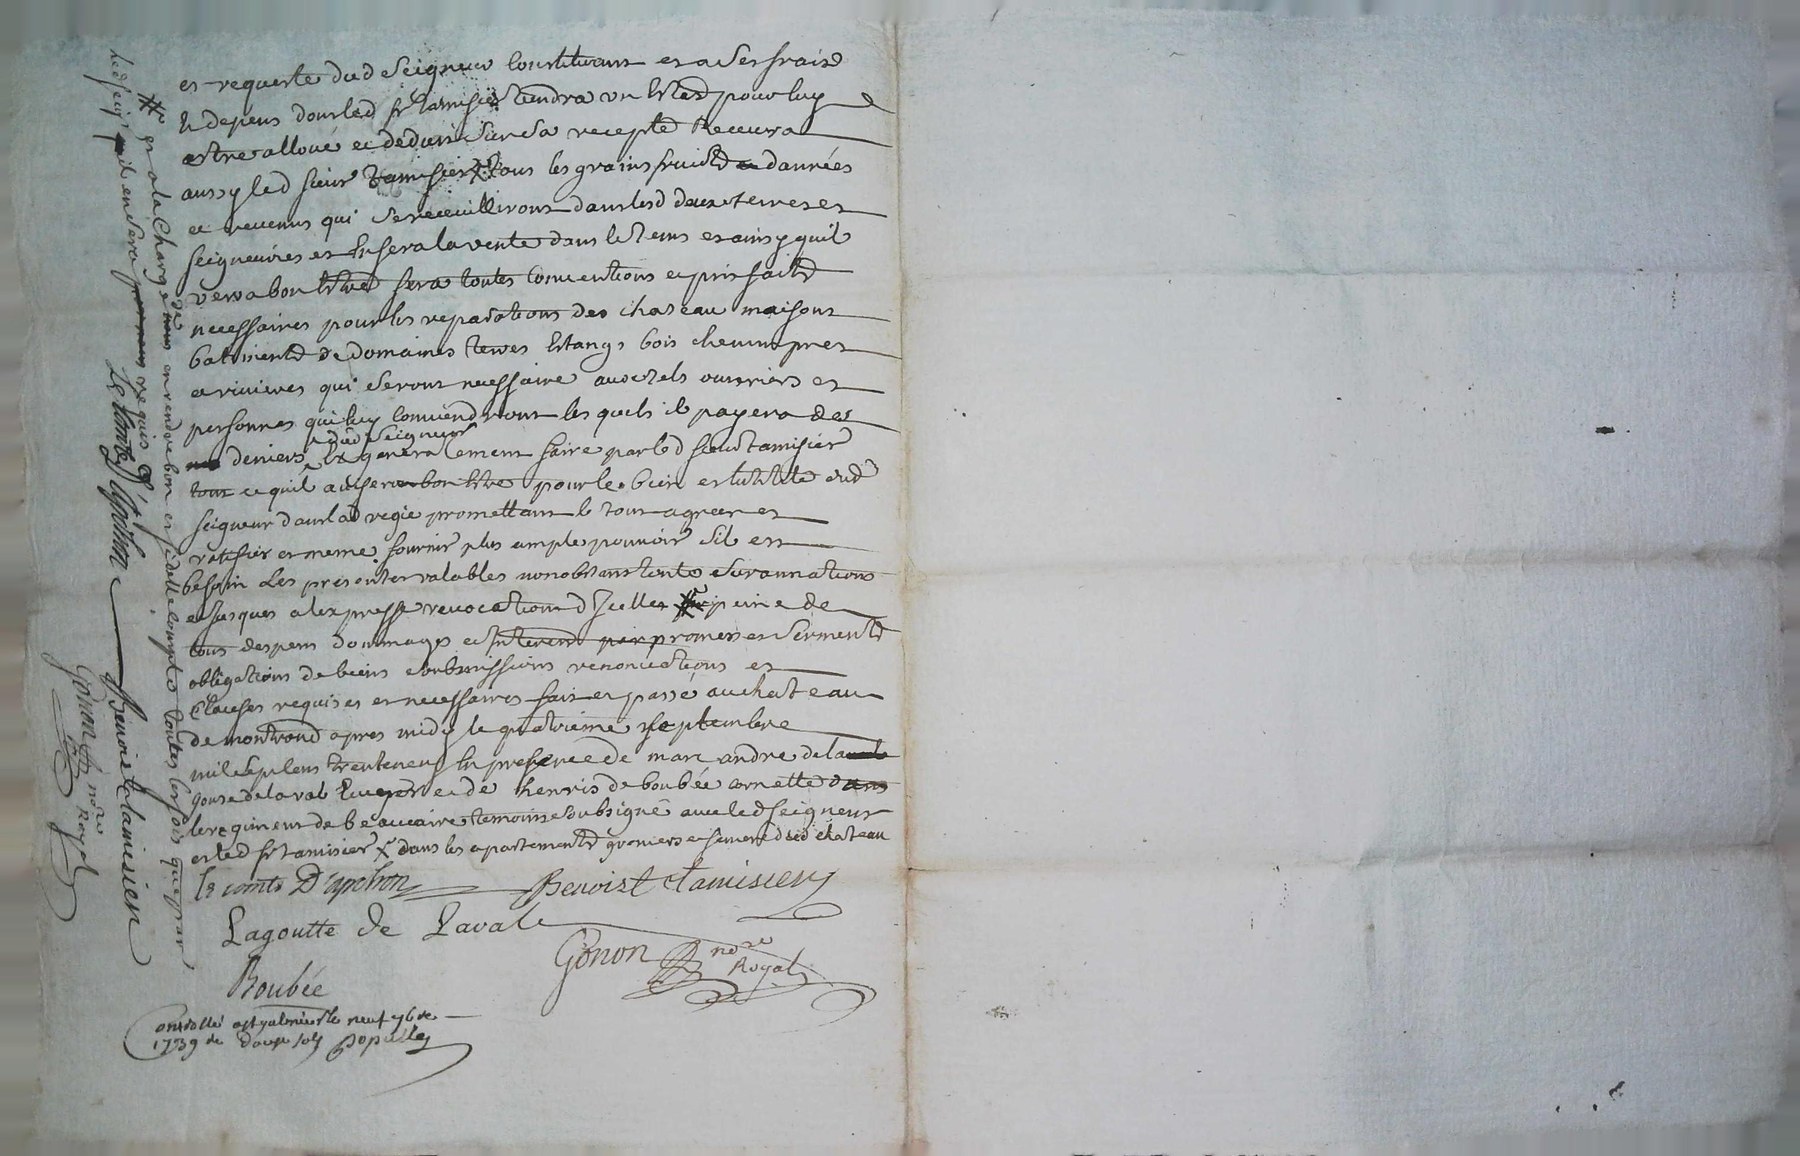 et requeste dud Seigneur Constituant et a Ses fraix
& depens dont led Sr tamisier tiendra un Estat pour luy
estre alloué et deduit Sur Sa recepte Recevra
aussy led Sieur Tamisier X tous les grains fruits danrées
et revenus qui Se receuilliront dans lesd deux terres et
Seigneuries et En fera la vente dans le tems et ainsy quil
verra bon Estre fera toutes Conventions et prix faits
necessaires pour les reparations des chateau maisons
batiments de domaines terres Estangs bois chemins prez
et rivieres qui Seront necessaire avec tels ouvriers et
personnes qui luy Conviendront les quels il payera des
deniers dud Seigneur Et generalement faire par led Sieur tamisier
tout ce quil avisera bon Estre pour le bien et lutilité dud
Seigneur dans lad regie promettant le tout agreer et
ratifier et meme fournir plus ample pouvoir Sil est
besoin Les presentes valables nonobstant toute Surannations
et jusques a lexpresse revocation d'Icelles peine de
tous despens dommages et Interets par promesses Serments
obligations de biens Soubmissions renonciations et
Clauses requises et necessaires fait et passé au chateau
de montrond apres midy le quatrieme Septembre
mil Sept cens trente neuf En presence de marc andre de la
goutte de laval Ecuyer et de henris de boubée cornette dans
le regiment de beaucaire temoins Soubsigné avec led Seigneur
et led Sr tamisier X dans les apartements greniers et dud chateau
le comte D'apchon Benoist tamisier
Lagoutte de Laval
Gonon nore Royal
Boubée
Controllé a St galmier le neuf 7bre
1739 Rc douze sols Populle
X et a la Charge de en rendre bon et fidelle Compte toutes les fois que par
led Seigr il en Sera requis
Le Comte d'Apchon Benoist tamisier
Gonon nore Royal